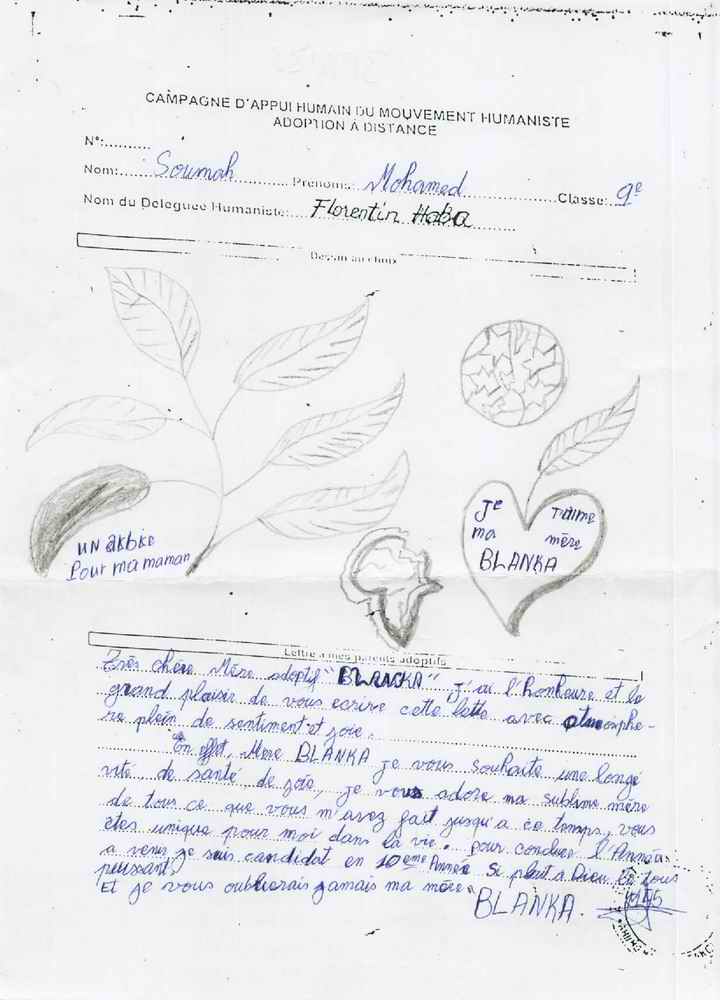 CAMPAGNE D'APPUI HUMAIN DU MOUVEMENT HUMANISTE
ADOPTION À DISTANCE
N°:..........
Nom: Soumah Prénoms: Mohamed Classe: 9e
Nom du Deleguée Humaniste: Florentin Haba
Dessin au choix
UN arbre
Pour ma maman
Je t'aime
ma mère
BLANKA
Lettre à mes parents adoptifs
Très chère Mère adoptif "BLANCKA" J'ai l'honheure et le
grand plaisir de vous ecrire cette lettre avec atmosphe-
re plein de sentiment et joie.
En effet, Mère BLANKA je vous souhaite une longe
vité de santé, de joie, je vous adore ma sublime mère
de tous ce que vous m'avez fait jusqu'a ce temps, vous
êtes unique pour moi dans la vie. pour conclure l'Année
a venir je suis candidat en 10eme Année si plait a Dieu le tous
puissant.
Et je vous oublierais jamais ma mère
BLANKA.